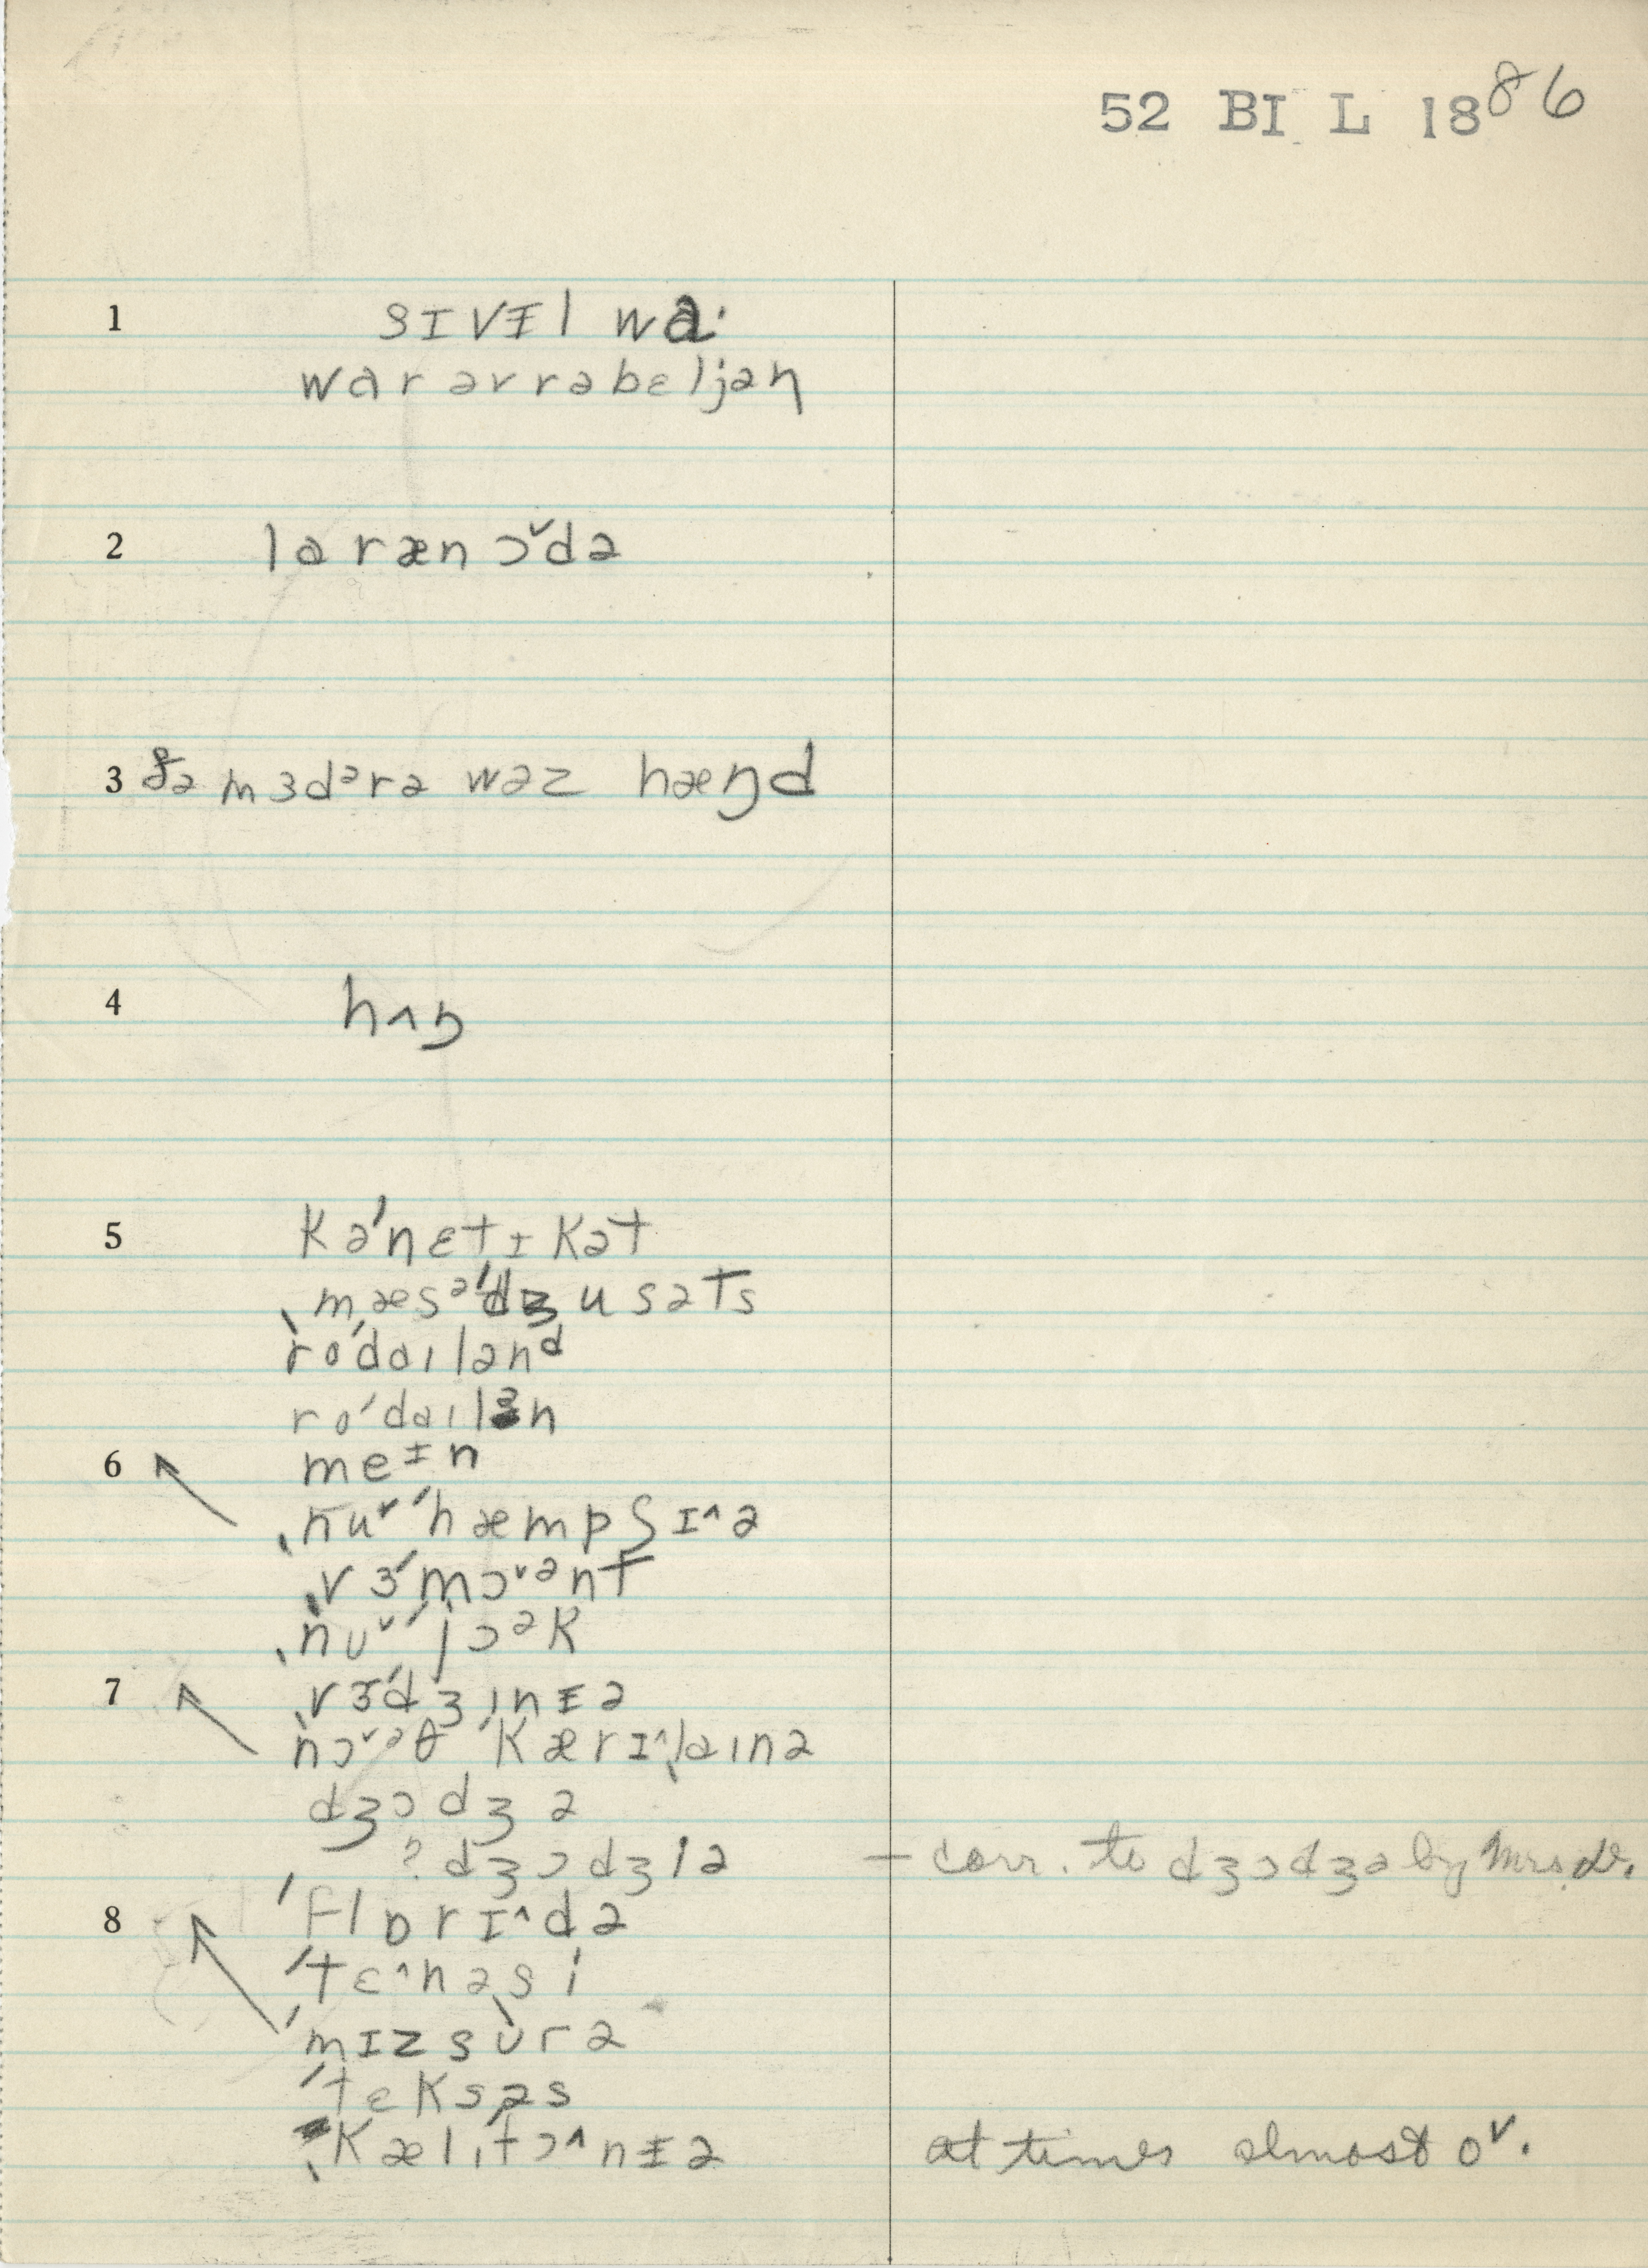 52 BI L 1886
1 sɪvɨl wɑ·
wɑr əvrrəbɛljən
2 lɑræn ɔˇdə
3 ðə mɜdᵊrə wəz hæŋd
4 hʌŋ
5 kəˈnɛtɪkət
ˌmæsəˈdʒusəts
ˌroˈdaɪlənᵈ
roˈdaɪlən
6 meᶧn
ˌnuˇˈhæmpʃɪ^ə
ˌvɜˈmɔˇᵊnt
ˌnuˇˈjɔᵊk
7 ˌvɜˈdʒɪnɨə
ˌnɔˇᵊθ ˈkærɪ^ˌlaɪnə
dʒɔdʒə
? dʒɔdʒɪə — corr. to dʒɔdʒə by Mrs. W.
8 ˈflɒrɪ^də
ˈtɛ^nəˌsi
ˈmɪzˌsʊrə
ˈtɛksəs
ˌkælɪˈfɔ^nɨə at times almost oˇ.